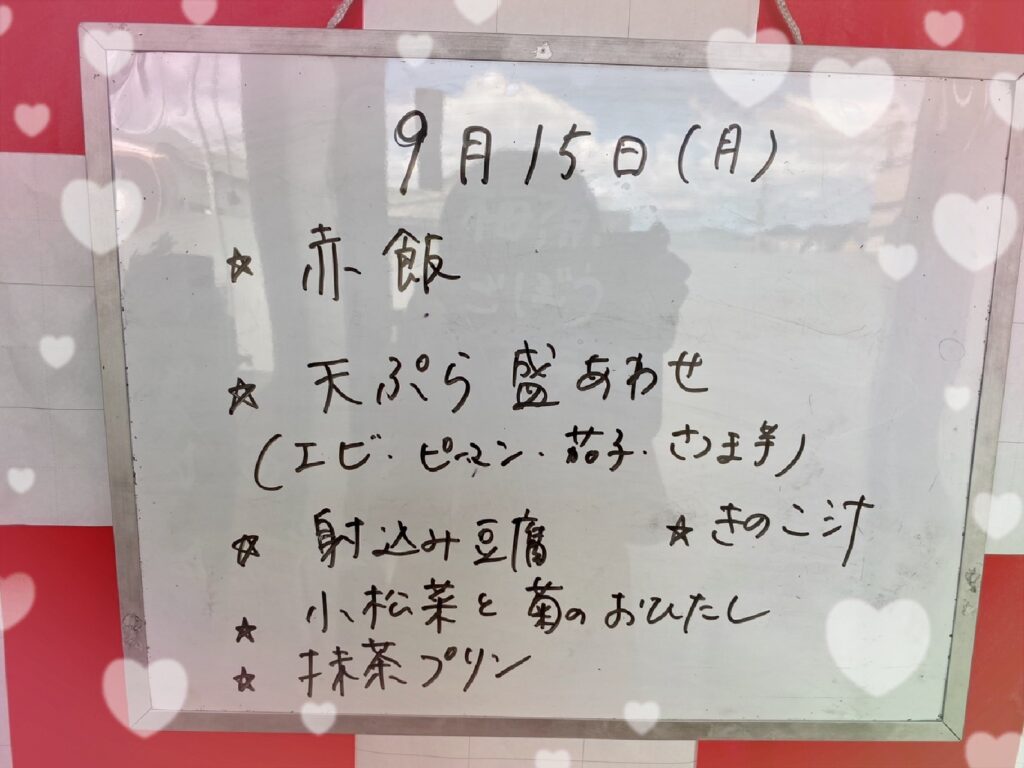 9月15日(月)
☆ 赤飯
☆ 天ぷら盛あわせ
(エビ・ピーマン・茄子・さつま芋)
☆ 射込み豆腐 ☆ きのこ汁
☆ 小松菜と菊のおひたし
☆ 抹茶プリン